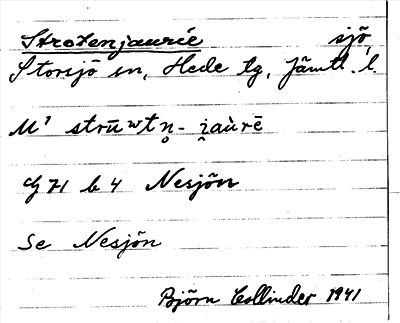 Strotenjaurie sjö,
Storsjö sn, Hede tg, Jämtl. l.
M¹ strūwtn̥- i̯aùrē
G 71 b 4 Nesjön
Se Nesjön
Björn Collinder 1941